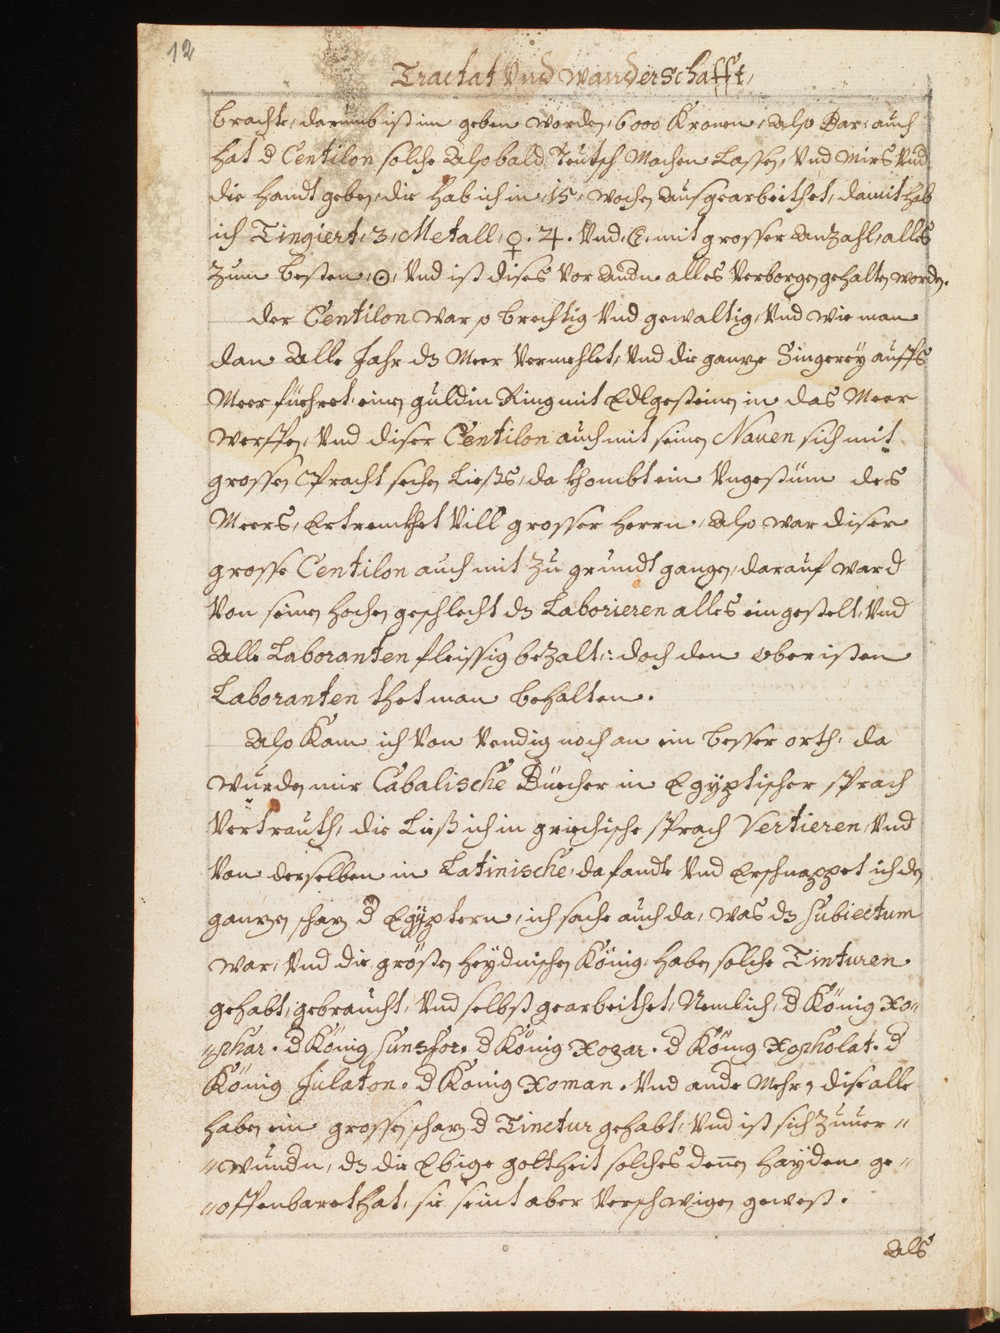 12
Tractat Vnd wanderschafft,
brachte, darumb ist im geben worden, 6000 Kronen, Also Bar, auch
hat d Centilon solche Alsobald Teutsch Machen Lassen, Vnd mirs Vnd
die handt geben, die hab ich in, 15, wochen Ausgearbeithet, damit hab
ich Tingiert, 3, Metall, ♀. ♃. Vnd, mit grosser Anzahl, alles
Zum besten, ☉, Vnd ist dises Vor Andn alles Verborgen gehalten worden.
der Centilon war so brechtig Vnd gewaltig, Vnd wie man
dan Alle Jahr dz Meer Vermehlet, Vnd die gantze Singerey auffs
Meer füehret, einen guldin Ring mit Edlgesteinen in das Meer
werffen, Vnd diser Centilon auch mit seinen Nauen sich mit
grossen Pracht sechen Liesßs, da khombt ein Vngestüm des
Meers, Ertrenckhet Vill grosser herrn, Also war diser
grosse Centilon auch mit Zu grundt gangen, darauf ward
Von seinen hochen geschlecht dz Laborieren alles eingestelt, Vnd
Alle Laboranten fleissig bezalt,: doch den obersten
Laboranten thet man behalten.
Also Kam ich Von Vendig noch an ein besser orth, da
wurden mir Cabalische Büecher in Egyptischer sprach
Vertrauth, die Ließ ich in griechische sprach Vertieren, Vnd
Von derselben in Latinische, da fandte Vnd Erschnappet ich den
gantzen schatz d Egyptern, ich sache auch da, was dz Subiectum
war, Vnd die grösten heydnischen König, haben solche Tinturen
gehabt, gebraucht, Vnd selbst gearbeithet, Nemlich, d König Xo„
„phar. d König Sunsfor. d König Xogar. d König Xopholat. d
König Julaton. d Konig Xoman. Vnd ande Mehr, dise alle
haben ein grossen schatz d Tinctur gehabt, Vnd ist sich Zuuer„
„wundn, dz die Ebige gottheit solches denen hayden ge„
„offenbaret hat, sie seint aber Verschwigen gewest.
Als